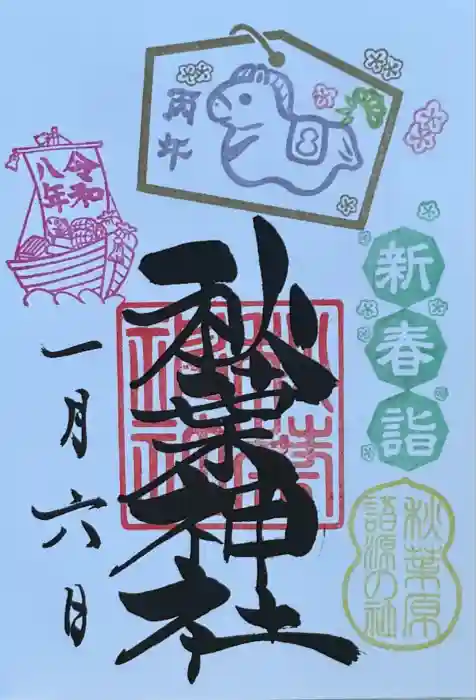 丙午
令和
八年
新春詣
秋葉神社
一月六日
秋葉原
諸源の社